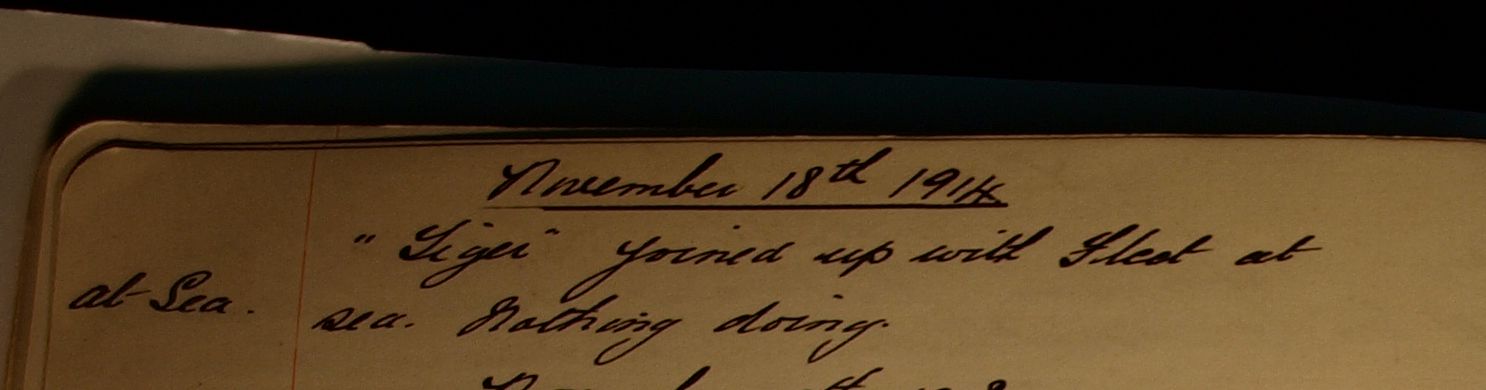 November 18th 1914
"Tiger" joined up with Fleet at
at Sea.
sea. Nothing doing.